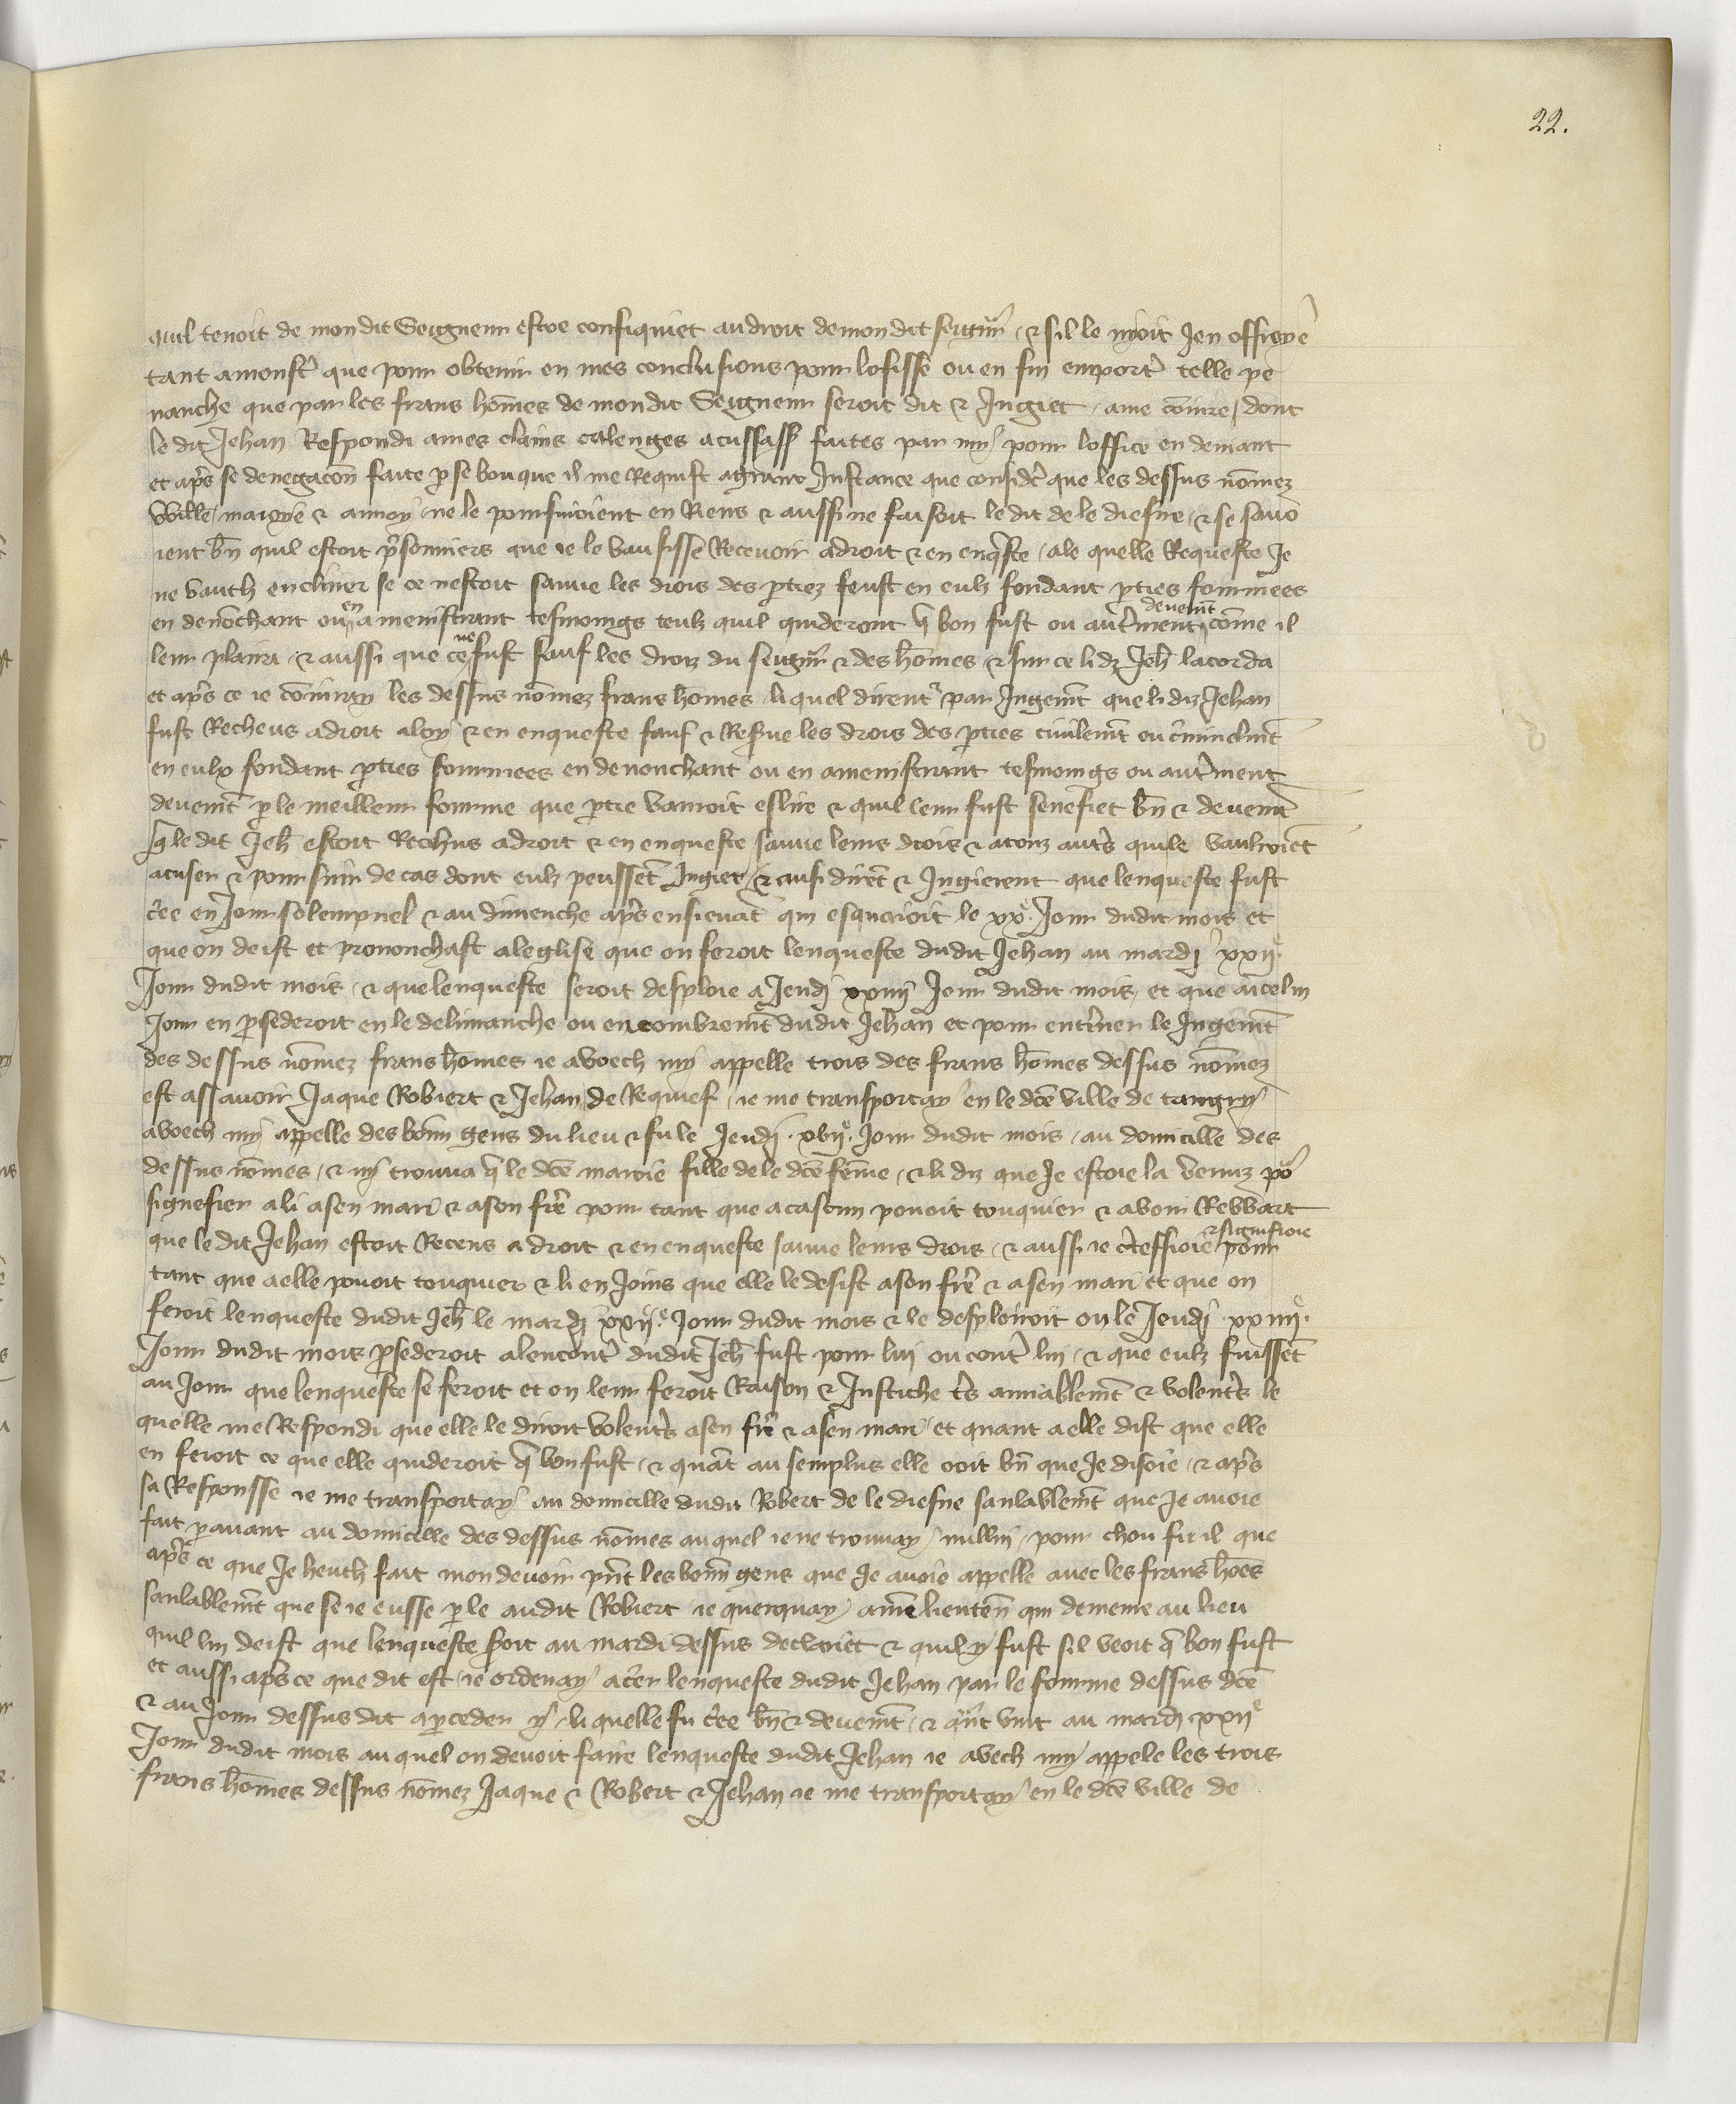 22.
quil tenoit de mondit Seigneur estre confiquiet au droit de mondit seignr / & sil le nioit Jen offroie
tant a monstr que pour obtenir en mes conclusions pour lofisse ou en fin emportr telle pe
nanche que par les frans homes de mondit Seigneur seroit dit & Jugiet / a me conjure / dont
le dit Jehan Respondi a mes clains calenges acussass faites par my / pour loffice en deniant
et aprs se denegacon faite p se bouque il me Requist a grant Instance que considr que les dessus nomez
Wille / maroie & annoy / ne le poursuivoient en Riens & aussi ne faisoit le dit de le diesne / & se savo
ient bn quil estoit prsonniers que ie le vausisse Recevoir a droit & en enqste / a le quelle Requeste Je
ne vauch encliner se ce nestoit sauve les drois des ptiez feust en eulz fondant pties fourmees
en denochant ou en amenistrant tesmoings teulz quil quideront q bon fust ou autrment deuemt come il
leur plaira / & aussi que ce ne fust sauf les droiz du seignr & des homes / & sur ce li dz Jeh lacorda
et aprs ce ie conjuray les dessus nomez frans homes / li quel dirent par Jugemt que li diz Jehan
fust Recheus a droit a loy & en enqueste sauf & Resve les drois des pties civilemt ou criminelmt
en eulx fondant pties fourmees en denonchant ou en amenistrant tesmoings ou autrment
deuemt p le meilleur fourme que ptie varroit eslire & quil leur fust senefiet bn & deuemt
q le dit Jeh estoit Rechus a droit & en enqueste sauve leurs drois & a touz autrs qui le vaulroiet
acuser & poursuir de cas dont eulz peusset Jugier / & ausi diret & Jugierent que lenqueste fust
criee en Jour solempnel & au dimenche aprs ensievat qui esquaioit le xxe. Jour dudit mois et
que on deist et prononchast a leglise que on feroit lenqueste dudit Jehan au mardj xxije.
Jour dudit mois / & que lenqueste seroit desploie a Jeudj xxiiij Jour dudit mois / et que a icelui
Jour en psederoit en le delivranche ou encombremt dudit Jehan et pour entriner le Jugemt
des dessus nomez frans homes ie avoech my appelle trois des frans homes dessus nomez
est assavoir Jaque Robiert & Jehan de Requief / ie me transportay en le dce ville de tangry
avoech my appelle des bonn gens du lieu & fu le Jeudj . xvije. Jour dudit mois / au domicille des
dessus nomes / & ny trouva q le dce maroie fille de le dce feme / & li diz que Je estoie la venuz por
signefier a li a sen mari & a son frere pour tant que a cascun povoit touquier & avoir Rewart
que le dit Jehan estoit Receus a droit & en enqueste sauve leurs drois / & aussi ie cteffioie & signifioie pour
tant que a elle povoit touquier & li enJoins que elle le desist a son frer & a sen mari et que on
feroit lenqueste dudit Jeh le mardj xxije. Jour dudit mois & le desploieroit on le Jeudj xxiiije.
Jour dudit mois psederoit alencontr dudit Jeh fust pour lui ou contr lui / & que eulz fuisset
au Jour que lenqueste se feroit et on leur feroit Raison & Justiche trs amiablemt & volentrs le
quelle me Respondi que elle le diroit volentrs a sen frer & a sen mari / et quant a elle dist que elle
en feroit ce que elle quideroit q bon fust / & quat au semplus elle ooit bn que Je disoie / & aprs
sa Responsse ie me transportay au domicille dudit Robert de le diesne sanlablemt que Je avoie
fait pavant au domicille des dessus nomes au quel ie ne trouvay nullui / pour chou fu il que
aprs ce que Je heuch fait mon devoir pnt les bonn gens que Je avoie appelle avec les frans homes
sanlablemt que se ie eusse ple audit Robiert / ie querquay a men lieuten qui demeure au lieu
quil lui deist que lenqueste seroit au mardi dessus declairet & quil y fust sil veoit q bon fust
et aussi aprs ce que dit est / ie ordenay a crier lenqueste dudit Jehan par le fourme dessus dce
& au Jour dessus dit a pceder y / li quelle fu criee bn & deuemt / & qnt vint au mardj xxije
Jour dudit mois au quel on devoit faire lenqueste dudit Jehan ie avech my appele les trois
frans homes dessus nomez Jaque & Robert & Jehan ie me transportay en le dce ville de